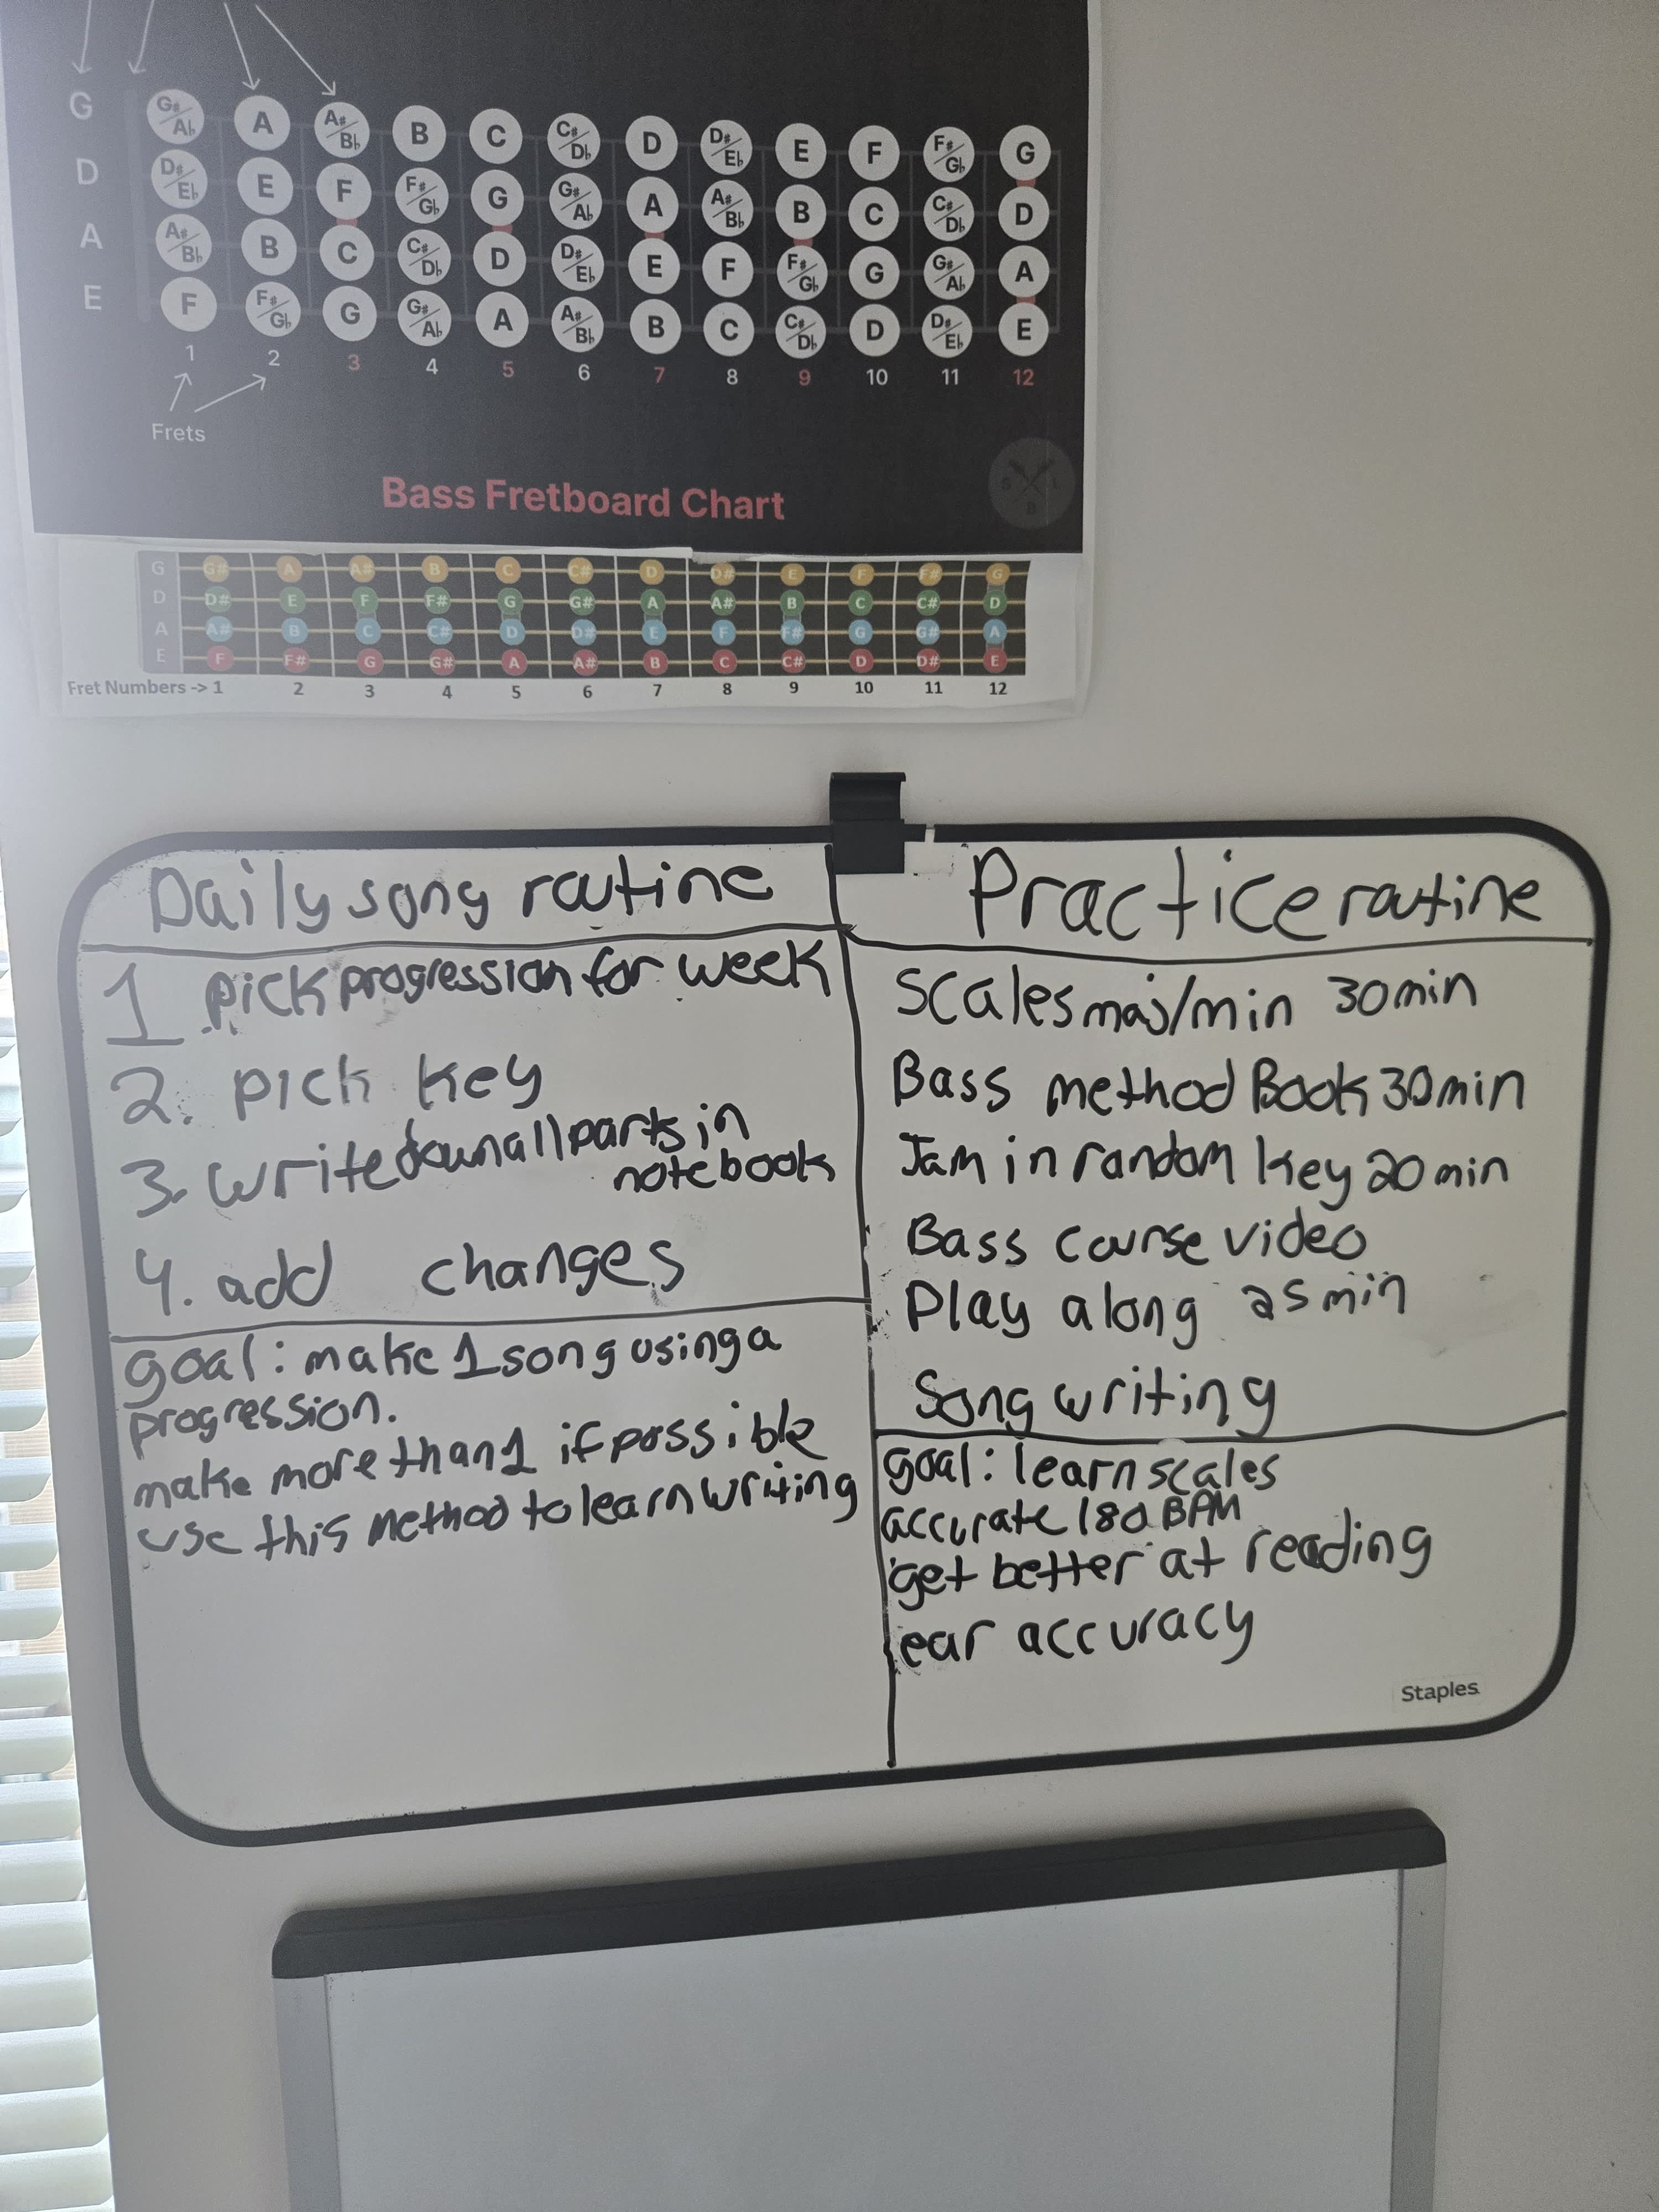 G G#/Ab A A#/Bb B C C#/Db D D#/Eb E F F#/Gb G
D D#/Eb E F F#/Gb G G#/Ab A A#/Bb B C C#/Db D
A A#/Bb B C C#/Db D D#/Eb E F F#/Gb G G#/Ab A
E F F#/Gb G G#/Ab A A#/Bb B C C#/Db D D#/Eb E
1 2 3 4 5 6 7 8 9 10 11 12
Frets
S L
B
Bass Fretboard Chart
G G# A A# B C C# D D# E F F# G
D D# E F F# G G# A A# B C C# D
A A# B C C# D D# E F F# G G# A
E F F# G G# A A# B C C# D D# E
Fret Numbers -> 1 2 3 4 5 6 7 8 9 10 11 12
Daily song routine
1 pick progression for week
2. pick key
3. write down all parts in
notebook
4. add changes
goal: make 1 song using a
progression.
make more than 1 if possible
use this method to learn writing
Practice routine
Scales maj/min 30min
Bass method Book 30min
Jam in random key 20min
Bass course video
Play along 25min
Song writing
goal: learn scales
accurate 180 BPM
get better at reading
ear accuracy
Staples